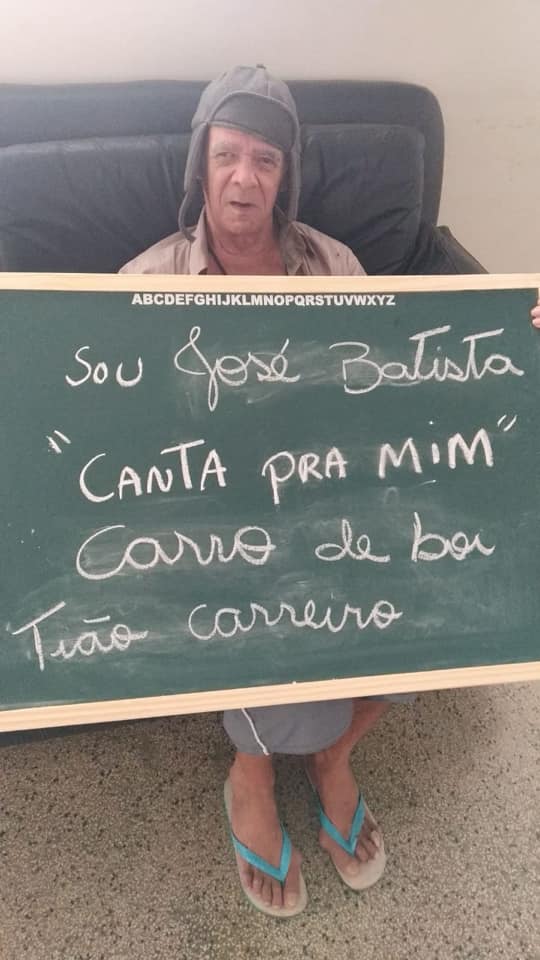 ABCDEFGHIJKLMNOPQRSTUVWXYZ
Sou José Batista
"CANTA PRA MIM"
Carro de boi
Tião Carreiro